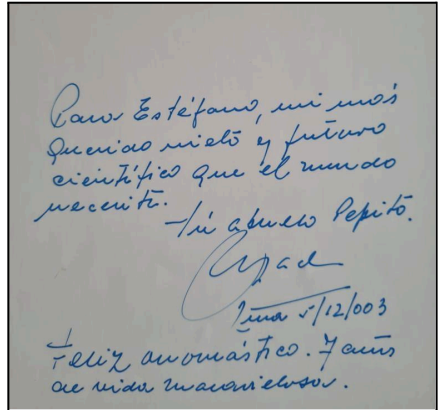 Para Estéfano, mi más
querido nieto y futuro
científico que el mundo
necesita.
Tú abuelo Pepito.
Lima 5/12/003
Feliz onomástico. 7 años
de vida maravillosa.